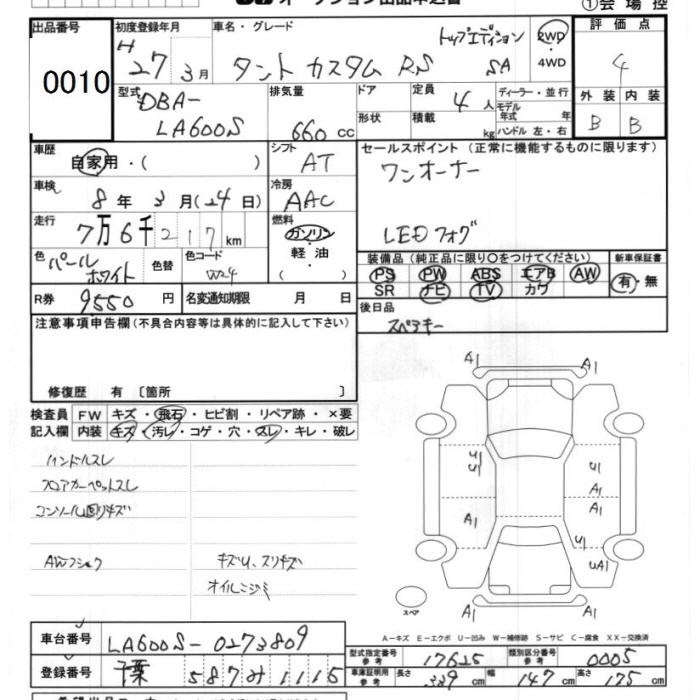 ①会場控
出品番号 0010
初度登録年月 H 27年3月
車名・グレード タント カスタム RS トップエディション SA
2WD ・ 4WD
評価点 4
外装 B 内装 B
型式 DBA-LA600S
排気量 660 cc
ドア 形状
定員 4人
積載 kg
ディーラー・並行
モデル年式 年
ハンドル 左・右
車歴 自家用・( )
シフト AT
セールスポイント (正常に機能するものに限ります)
ワンオーナー
LEDフォグ
車検 8年 3月(24日)
冷房 AAC
走行 7万6千217km
燃料 ガソリン・軽油・( )
色 パールホワイト
色替
色コード W24
装備品 (純正品に限り○をつけてください)
PS PW ABS エアB AW
SR ナビ TV カワ
新車保証書 有・無
R券 9,550円
名変通知期限 月 日
後日品 スペアキー
注意事項申告欄 (不具合内容等は具体的に記入して下さい)
修復歴 有 〔箇所 〕
検査員記入欄
FW キズ・飛石・ヒビ割・リペア跡・×要
内装 キズ・汚レ・コゲ・穴・スレ・キレ・破レ
ハンドルスレ
フロアカーペットスレ
コンソール回りキズ
AWフショク
キズU、スリキズ
オイルニジミ
A1 A1
U1 U1 U1
A1
A1 A1
U1
UA1
A1
スペア
A−キズ E−エクボ U−凹み W−補修跡 S−サビ C−腐食 XX−交換済
車台番号 LA600S-0273809
登録番号 千葉 587 み 1115
型式指定番号 参考 17625
類別区分番号 参考 0005
車庫証明用 参考 長さ 339cm 幅 147cm 高さ 175cm